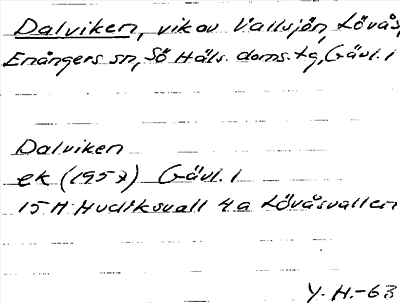 Dalviken, vik av Vallsjön, Lövås,
Enångers sn, Sö Häls. doms. tg, Gävl. l
Dalviken
ek (1957) Gävl. l
15 H Hudiksvall 4a Lövåsvallen
Y. H.-63